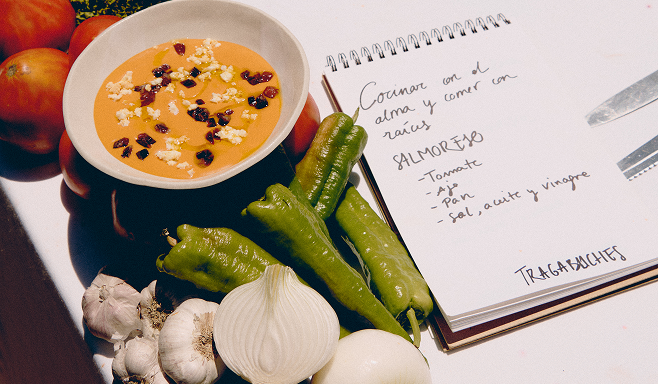 Cocinar con el
alma y comer con
raíces
SALMOREJO
- Tomate
- Ajo
- Pan
- Sal, aceite y vinagre
TRAGABUCHES